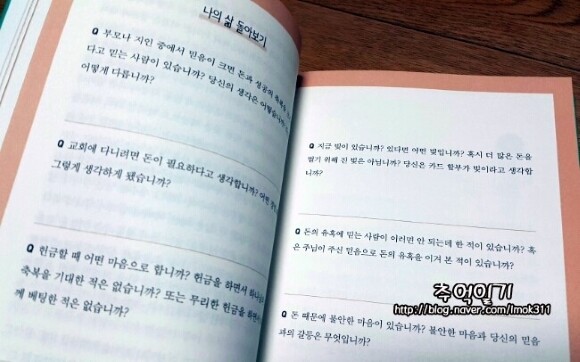 나의 삶 돌아보기
Q 부모나 지인 중에서 믿음이 크면 돈과 성공의 축복
다고 믿는 사람이 있습니까? 당신의 생각은
어떻게 다릅니까?
Q 교회에 다니려면 돈이 필요하다고 생각합니까? 어떤
그렇게 생각하게 됐습니까?
Q 헌금할 때 어떤 마음으로 합니까? 헌금을 하면서
축복을 기대한 적은 없습니까? 또는 무리한 헌금을 하면서
께 베팅한 적은 없습니까?
Q 지금 빚이 있습니까? 있다면 어떤 빚입니까? 혹시 더 많은 돈을
벌기 위해 진 빚은 아닙니까? 당신은 카드 할부가 빚이라고 생각합
니까?
Q 돈의 유혹에 믿는 사람이 이러면 안 되는데 한 적이 있습니까? 혹
은 주님이 주신 믿음으로 돈의 유혹을 이겨 본 적이 있습니까?
Q 돈 때문에 불안한 마음이 있습니까? 불안한 마음과 당신의 믿음
과의 갈등은 무엇입니까?
추억일기
http://blog.naver.com/lmok311